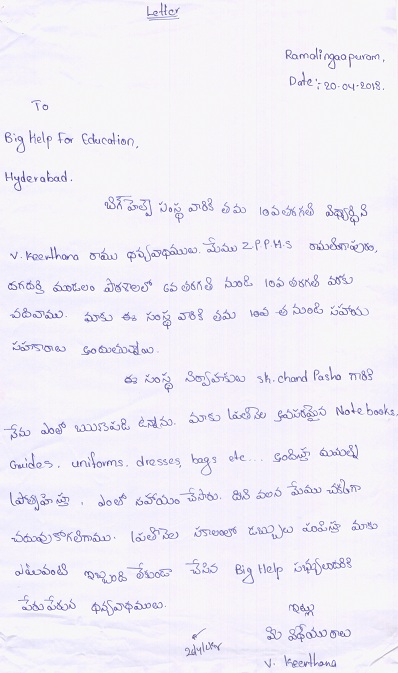 Letter
Ramalingaapuram,
Date:- 20-04-2018.
To
Big Help For Education,
Hyderabad.
బిగ్ హెల్ప్ సంస్థ వారికి తమ 10వ తరగతి విద్యార్థిని
V. Keerthana రాయు ధన్యవాదములు. మేము Z.P.P.H.S రామలింగాపురం,
దగదర్తి మండలం పాఠశాలలో 6వ తరగతి నుండి 10వ తరగతి వరకు
చదివాము. మాకు ఈ సంస్థ వారికి తమ 10వ త నుండి సహాయ
సహకారాలు అందుతున్నాయి.
ఈ సంస్థ నిర్వాహకులు sk. chand Pasha గారికి
నేను ఎంతో ఋణపడి ఉన్నాను. మాకు ప్రతినెల అవసరమైన Notebooks,
Guides, uniforms, dresses, bags etc... అందిస్తూ మమ్మల్ని
ప్రోత్సహిస్తూ, ఎంతో సహాయం చేసారు. దీని వలన మేము చక్కగా
చదువుకోగలిగాము. ప్రతినెల సకాలంలో డబ్బులు పంపిస్తూ మాకు
ఎటువంటి ఇబ్బంది లేకుండా చేసిన Big Help సభ్యులందరికి
పేరుపేరున ధన్యవాదములు.
ఇట్లు
మీ విధేయురాలు
V. Keerthana